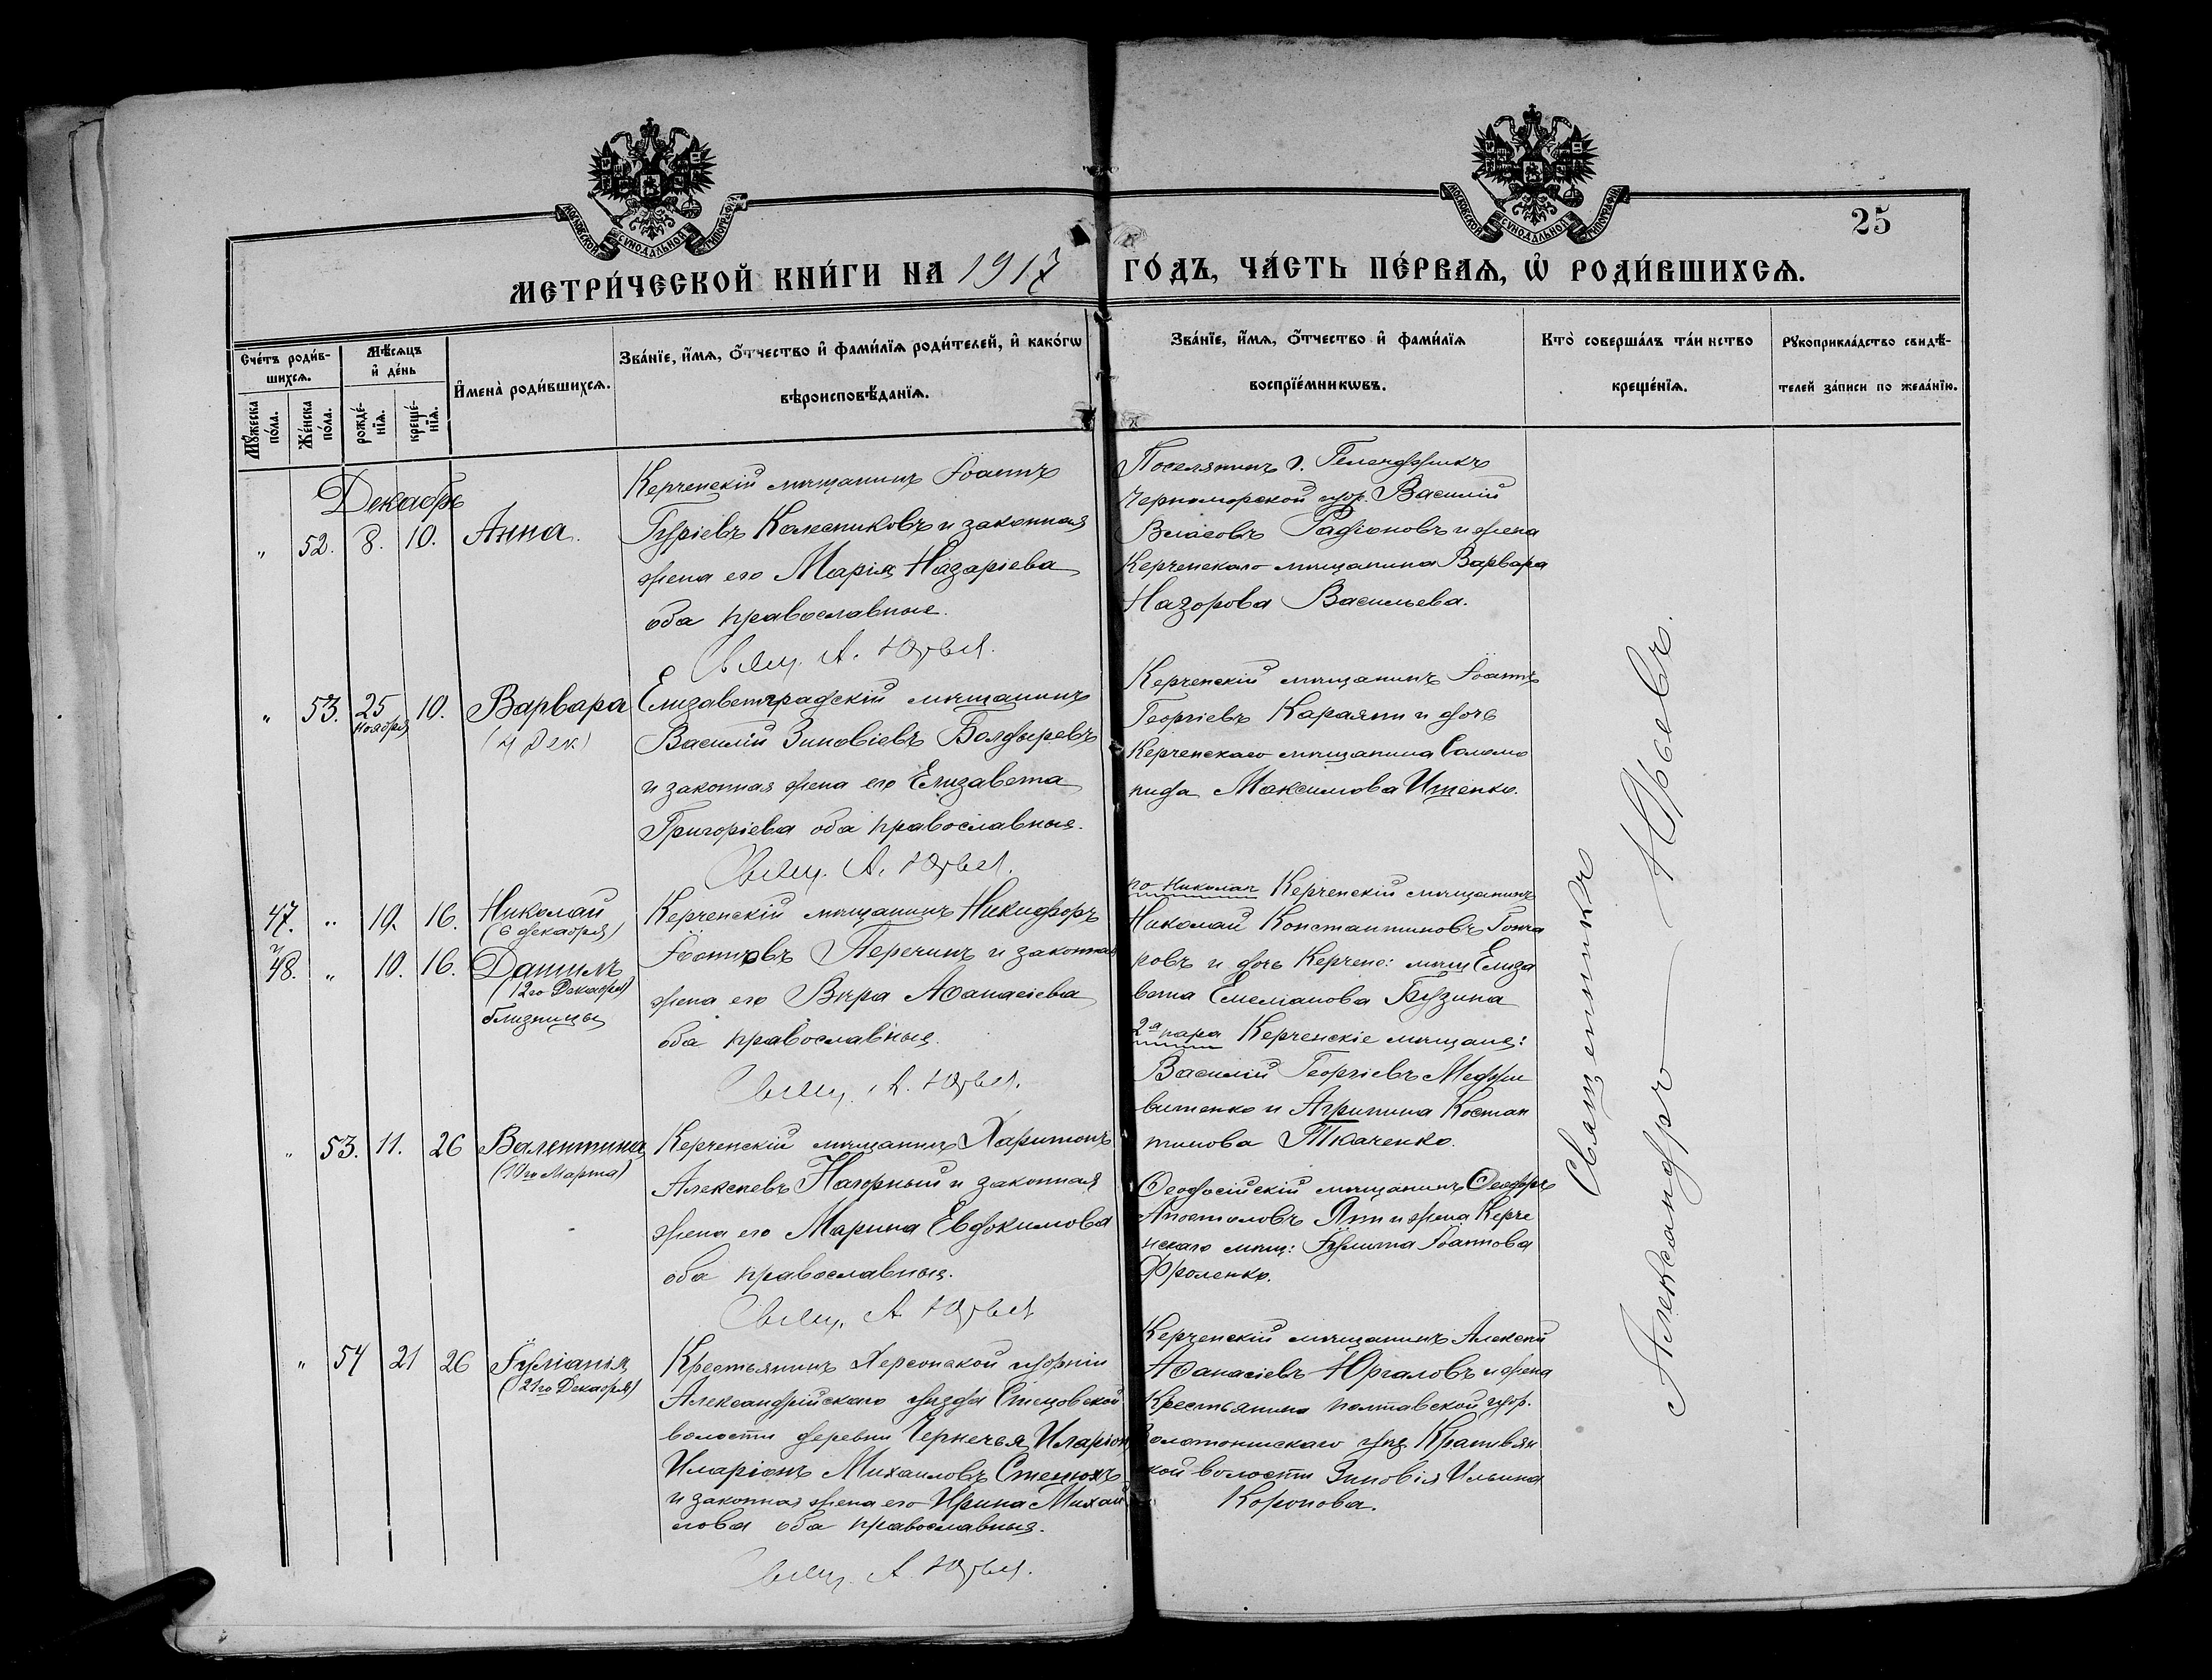 МОСКОВСКОЙ СѴНОДАЛЬНОЙ ТИПОГРАФІИ
МОСКОВСКОЙ СѴНОДАЛЬНОЙ ТИПОГРАФІИ
25
МЕТРИ́ЧЕСКОЙ КНИ́ГИ НА 1917 ГО́ДЪ, ЧА́СТЬ ПЕ́РВАѦ, Ѡ҆ РОДИ́ВШИХСѦ.
Сче́тъ роди́в-
шихсѧ.
Мꙋ́жеска
по́ла.
Же́нска
по́ла.
Мѣ́сѧцъ
и҆ де́нь
рожде́-
нїѧ.
креще́-
нїѧ.
И҆мена̀ роди́вшихсѧ.
Зва́нїе, и҆́мѧ, ѻ҆́тчество и҆ фами́лїѧ роди́телей, и҆ како́гѡ
вѣроисповѣ́данїѧ.
Зва́нїе, и҆́мѧ, ѻ҆́тчество и҆ фами́лїѧ
воспрїе́мникѡвъ.
Кто̀ соверша́лъ та́инство
креще́нїѧ.
Рꙋкоприкла́дство свидѣ́-
телей за́писи по жела́нїю.
Декабрь
" 52. 8. 10. Анна.
Керченскій мѣщанинъ Іоаннъ
Гуріевъ Колесниковъ и законная
жена его Марія Назаріева
оба православные.
Свящ. А. Юрьев.
Поселянинъ г. Геленджикъ
Черноморской губ. Василій
Власовъ Радіоновъ и жена
Керченскаго мѣщанина Варвара
Назорова Васильева.
" 53. 25 Ноября 10. Варвара
(4 дек.)
Елизаветградскій мѣщанинъ
Василій Зиновіевъ Болдыревъ
и законная жена его Елизавета
Григоріева оба православные.
Свящ. А. Юрьев.
Керченскій мѣщанинъ Іоаннъ
Георгіевъ Караяни и дочь
Керченскаго мѣщанина Саломо
нида Максимова Ищенко.
47. " 10. 16. Николай
(6 декабря)
и
48. " 10. 16. Даниилъ
(12го Декабря)
близнецы
Керченскій мѣщанинъ Никифоръ
Іоанновъ Перечинъ и законная
жена его Вѣра Аѳанасіева
оба православные.
Свящ. А. Юрьев.
по Николая Керченскій мѣщанинъ
Николай Константиновъ Гонча
ровъ и дочь Керченс: мѣщ Елиза
вета Емелианова Бузина
2я пара Керченскіе мѣщане:
Василій Георгіевъ
витенко и Агрипина Констан
тинова Ткаченко.
" 53. 11. 26 Валентина
(10го Марта)
Керченскій мѣщанинъ Харитонъ
Алексѣевъ Нагорный и законная
жена его Марина Евдокимова
оба православные.
Свящ. А. Юрьев
Ѳеодосійскій мѣщанинъ Ѳеодоръ
Апостоловъ и жена Керче
нскаго мѣщ: Іулитта Іоаннова
Фроленко.
" 54 21 26 Іуліанія
(21го Декабря)
Крестьянинъ Херсонской губерніи
Александрійскаго уѣзда Стецовской
волости деревни Иларіон
Иларіонъ Михаиловъ Стецюкъ
и законная жена его Ирина Михаи
лова оба православные.
Свящ. А. Юрьев.
Керченскій мѣщанинъ Алексѣй
Аѳанасіевъ Юргаловъ и жена
Крестьянина Полтавской губ.
Золотоношскаго уѣз. Крапивян
кой волости Зиновія Ильина
Коропова.
Священникъ
Александръ Юрьевъ.